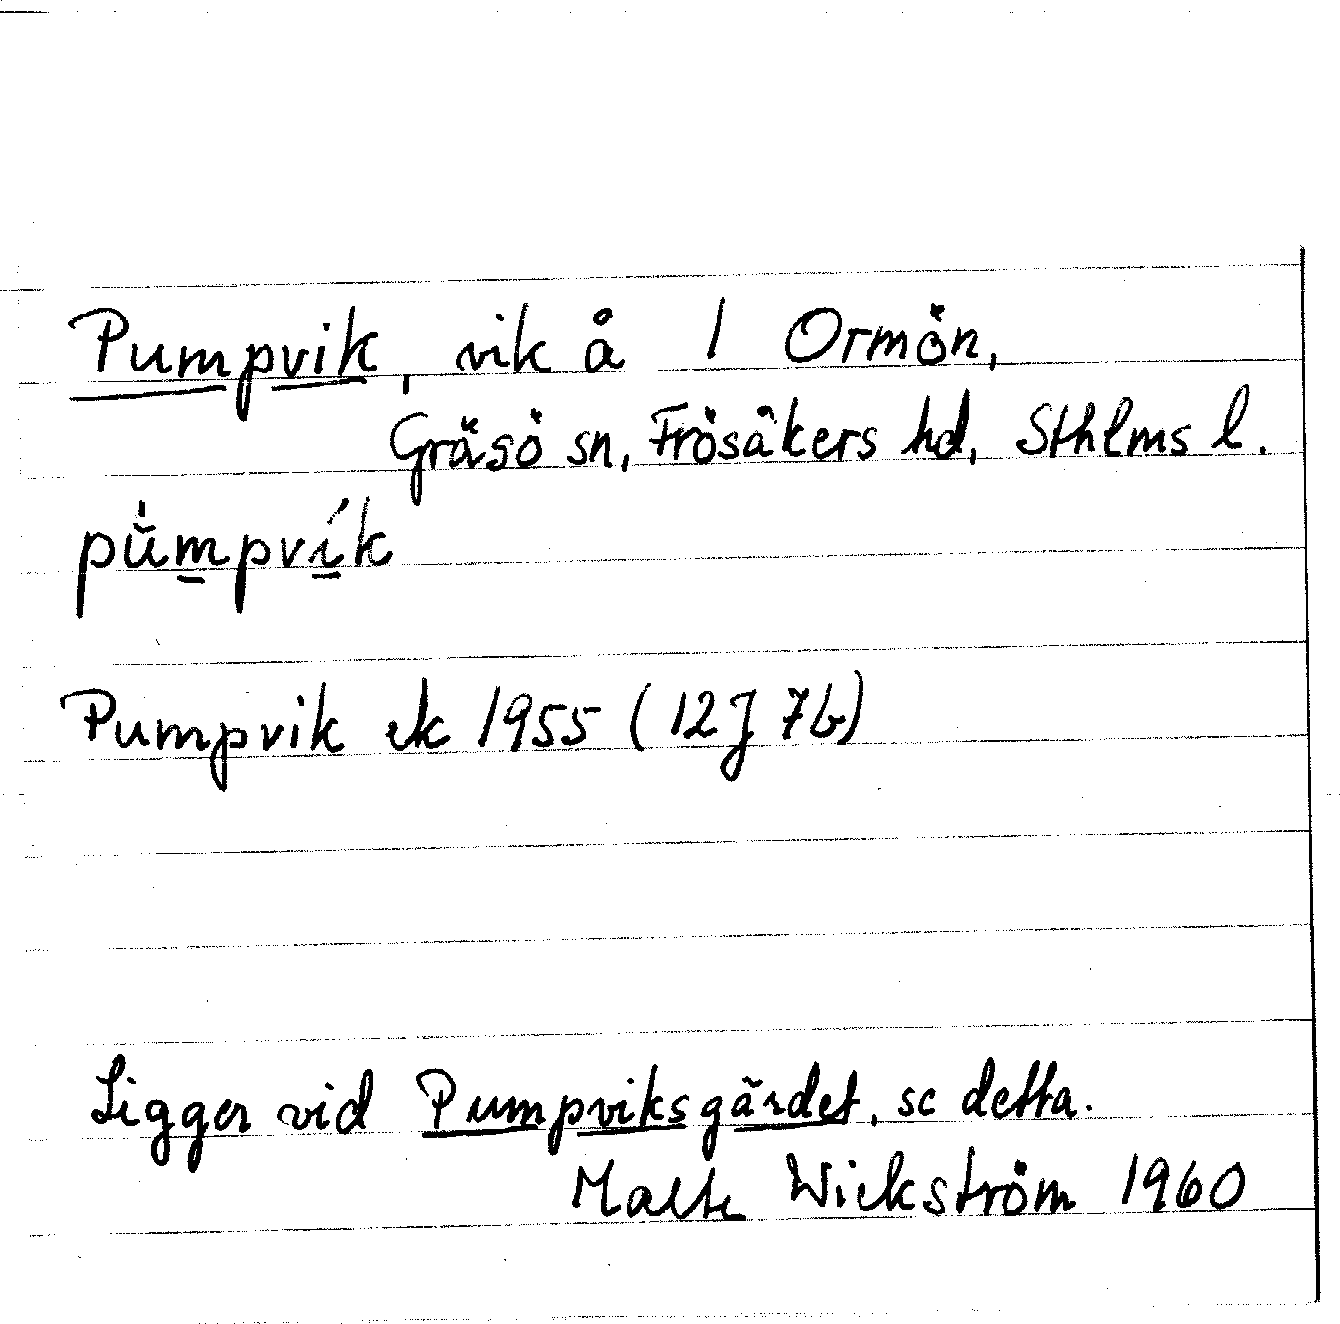 Pumpvik, vik å 1 Ormön,
Gräsö sn, Frösåkers hd, Sthlms l.
pǜm̲pví̲k
Pumpvik ek 1955 (12J 7b)
Ligger vid Pumpviksgärdet, se detta.
Malte Wickström 1960